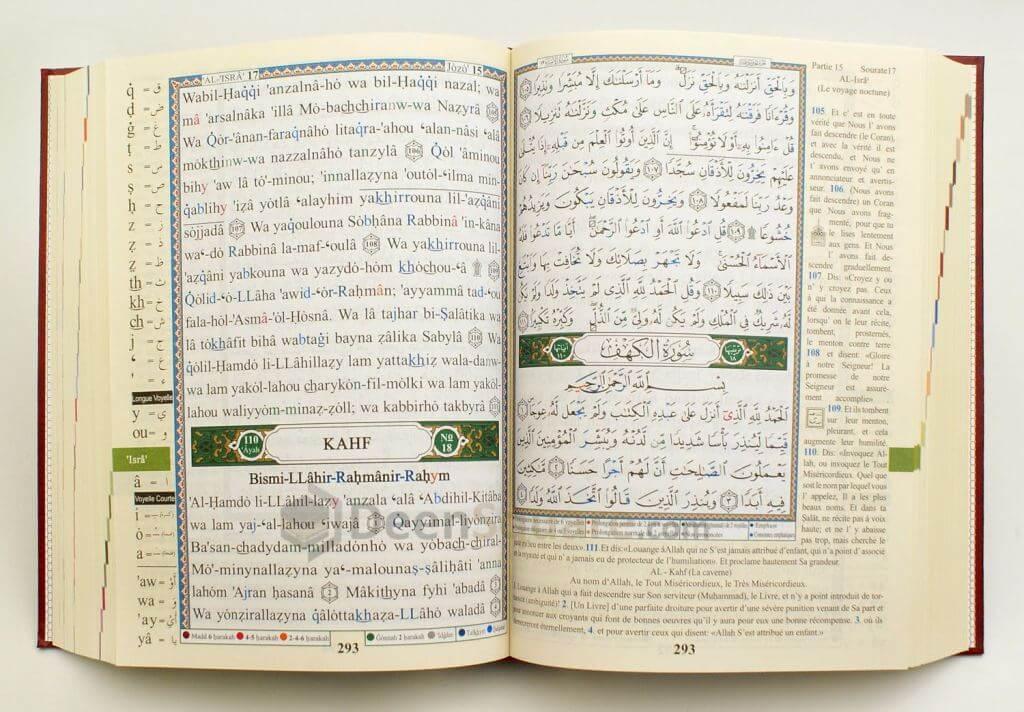 'AL-'ISRÂ' 17
Jòzò' 15
Wabil-Ḥaq̈q̈i 'anzalnâ-hò wa bil-Ḥaq̈q̈i nazal; wa
mâ 'arsalnâka 'illâ Mò-bachchiranw-wa Naẓyrâ 105
Wa Q̈òr-'ânan-faraq̈nâhò litaq̈ra-'ahou ʿalan-nâsi ʿalâ
mòkthinw-wa nazzalnâhò tanzylâ 106 Q̈òl 'âminou
bihy 'aw lâ tò'-minou; 'innallaẓyna 'outòl-ʿilma min-
q̈ablihy 'iẓâ yòtlâ ʿalayhim yakhirrouna lil-'aẓq̈âni
sòjjadâ 107 Wa yaq̈oulouna Sòbḥâna Rabbinâ 'in-kâna
waʿ-dò Rabbinâ la-maf-ʿoulâ 108 Wa yakhirrouna lil-
'aẓq̈âni yabkouna wa yazydò-hòm khòchou-ʿâ 109
Q̈òlid-ʿò-LLâha 'awid-ʿòr-Raḥmân; 'ayyammâ tad-ʿou
fala-hòl-'Asmâ-'òl-Ḥòsnâ. Wa lâ tajhar bi-Ṣalâtika wa
lâ tòkhâfit bihâ wabtaġi bayna ẓâlika Sabylâ 110 Wa
q̈òlil-Ḥamdò li-LLâhillaẓy lam yattakhiẓ wala-danw-
wa lam yakòl-lahou charykòn-fil-mòlki wa lam yakòl-
lahou waliyyòm-minaẓ-ẓòll; wa kabbirhò takbyrâ 111
110 'Âyah
KAHF
No 18
Bismi-LLâhir-Raḥmânir-Raḥym
'Al-Ḥamdò li-LLâhil-laẓy 'anzala ʿalâ ʿAbdihil-Kitâba
wa lam yaj-ʿal-lahou ʿiwajâ 1 Q̈ayyimal-liyònẓira
Ba'san-chadydam-milladònhò wa yòbach-chiral-
Mò'-minynallaẓyna yaʿ-malounaṣ-ṣâliḥâti 'anna
lahòm 'Ajran ḥasanâ 2 Mâkithyna fyhi 'abadâ 3
Wa yònẓirallaẓyna q̈âlòttakhaẓa-LLâhò waladâ 4
Madd 6 ḥarakah
4-5 ḥarakah
2-4-6 ḥarakah
Ġònnah 2 ḥarakah
'Idġâm
Tafkhym
293
q̈ = ق
ḍ = ض
ġ = غ
ṭ = ط
s = س
ṣ = ص
ḥ = ح
z = ز
ẓ = ذ
th = ث
kh = خ
ch = ش
' = ء
ʿ = ع
Longue Voyelle
y = ي
ou = و
'Isrâ'
â = ا
Voyelle Courte
i =
ò =
a =
'aw = أَوْ
wa = وَ
'ay = أَيْ
yâ = يا
Deen
.com
وَبِالْحَقِّ أَنْزَلْنَاهُ وَبِالْحَقِّ نَزَلَ وَمَا أَرْسَلْنَاكَ إِلَّا مُبَشِّرًا وَنَذِيرًا ١٠٥
وَقُرْآنًا فَرَقْنَاهُ لِتَقْرَأَهُ عَلَى النَّاسِ عَلَى مُكْثٍ وَنَزَّلْنَاهُ تَنْزِيلًا ١٠٦
قُلْ آمِنُوا بِهِ أَوْ لَا تُؤْمِنُوا إِنَّ الَّذِينَ أُوتُوا الْعِلْمَ مِنْ قَبْلِهِ إِذَا يُتْلَى
عَلَيْهِمْ يَخِرُّونَ لِلْأَذْقَانِ سُجَّدًا ١٠٧ وَيَقُولُونَ سُبْحَانَ رَبِّنَا إِنْ كَانَ
وَعْدُ رَبِّنَا لَمَفْعُولًا ١٠٨ وَيَخِرُّونَ لِلْأَذْقَانِ يَبْكُونَ وَيَزِيدُهُمْ
خُشُوعًا ١٠٩ قُلِ ادْعُوا اللَّهَ أَوِ ادْعُوا الرَّحْمَنَ أَيًّا مَا تَدْعُوا فَلَهُ
الْأَسْمَاءُ الْحُسْنَى وَلَا تَجْهَرْ بِصَلَاتِكَ وَلَا تُخَافِتْ بِهَا وَابْتَغِ
بَيْنَ ذَلِكَ سَبِيلًا ١١٠ وَقُلِ الْحَمْدُ لِلَّهِ الَّذِي لَمْ يَتَّخِذْ وَلَدًا وَلَمْ يَكُنْ
لَهُ شَرِيكٌ فِي الْمُلْكِ وَلَمْ يَكُنْ لَهُ وَلِيٌّ مِنَ الذُّلِّ وَكَبِّرْهُ تَكْبِيرًا ١١١
ترتيبها ١٨
سُورَةُ الْكَهْفِ
آياتها ١١٠
بِسْمِ اللَّهِ الرَّحْمَنِ الرَّحِيمِ
الْحَمْدُ لِلَّهِ الَّذِي أَنْزَلَ عَلَى عَبْدِهِ الْكِتَابَ وَلَمْ يَجْعَلْ لَهُ عِوَجًا ١
قَيِّمًا لِيُنْذِرَ بَأْسًا شَدِيدًا مِنْ لَدُنْهُ وَيُبَشِّرَ الْمُؤْمِنِينَ الَّذِينَ
يَعْمَلُونَ الصَّالِحَاتِ أَنَّ لَهُمْ أَجْرًا حَسَنًا ٢ مَاكِثِينَ
فِيهِ أَبَدًا ٣ وَيُنْذِرَ الَّذِينَ قَالُوا اتَّخَذَ اللَّهُ وَلَدًا ٤
Partie 15 Sourate17
AL-Isrâ'
(Le voyage nocture)
105. Et c' est en toute
vérité que Nous l' avons
fait descendre (le Coran),
et avec la vérité il est
descendu, et Nous ne
t' avons envoyé qu' en
annonciateur et avertis-
seur. 106. (Nous avons
fait descendre) un Coran
que Nous avons frag-
menté, pour que tu
le lises lentement
aux gens. Et Nous
l' avons fait de-
scendre graduellement.
107. Dis: «Croyez y ou
n' y croyez pas. Ceux
à qui la connaissance a
été donnée avant cela,
lorsqu' on le leur récite,
tombent, prosternés,
le menton contre terre
108 et disent: «Gloire
à notre Seigneur! La
promesse de notre
Seigneur est assuré-
ment accomplie»
109. Et ils tombent
sur leur menton,
pleurant, et cela
augmente leur humilité.
110. Dis: «Invoquez Al-
lah, ou invoquez le Tout
Miséricordieux. Quel que
soit le nom par lequel vous
l' appelez, Il a les plus
beaux noms. Et dans ta
Ṣalât, ne récite pas à voix
haute; et ne l' y abaisse
pas trop, mais cherche le
juste milieu entre les deux». 111. Et dis: «Louange àAllah qui ne S'est jamais attribué d'enfant, qui n'a point d'associé
et la royauté et qui n' a jamais eu de protecteur de l'humiliation». Et proclame hautement Sa grandeur.
AL - Kahf (La caverne)
Au nom d'Allah, le Tout Miséricordieux, le Très Miséricordieux.
1. Louange à Allah qui a fait descendre sur Son serviteur (Muhammad), le Livre, et n'y a point introduit de tor-
(ambiguïté)! 2. [Un Livre] d'une parfaite droiture pour avertir d'une sévère punition venant de Sa part et
annoncer aux croyants qui font de bonnes oeuvres qu'il y aura pour eux une bonne récompense. 3. où ils
demeureront éternellement, 4. et pour avertir ceux qui disent: «Allah S'est attribué un enfant.»
293